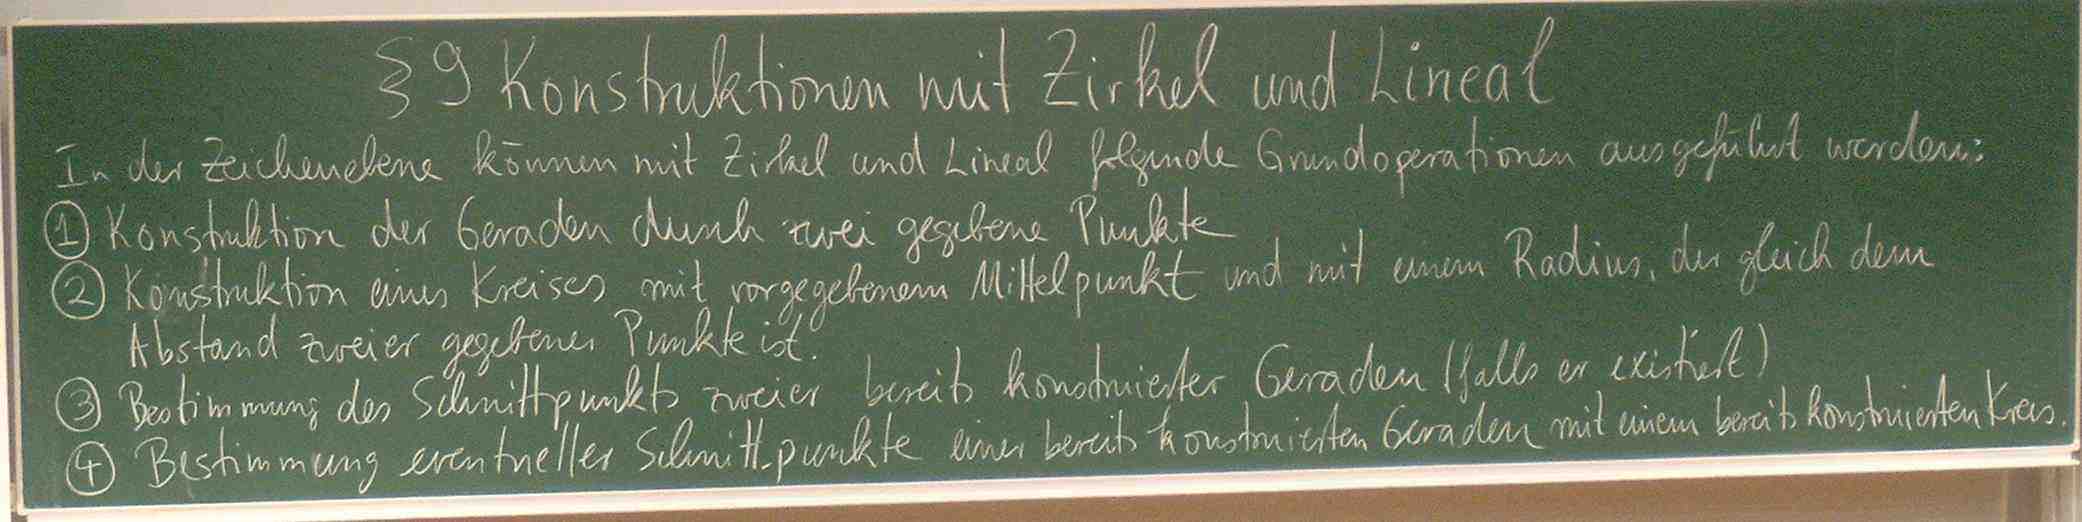 § 9 Konstruktionen mit Zirkel und Lineal
In der Zeichenebene können mit Zirkel und Lineal folgende Grundoperationen ausgeführt werden:
① Konstruktion der Geraden durch zwei gegebene Punkte
② Konstruktion eines Kreises mit vorgegebenem Mittelpunkt und mit einem Radius, der gleich dem
Abstand zweier gegebener Punkte ist.
③ Bestimmung des Schnittpunkts zweier bereits konstruierter Geraden (falls er existiert)
④ Bestimmung eventueller Schnittpunkte einer bereits konstruierten Geraden mit einem bereits konstruierten Kreis.